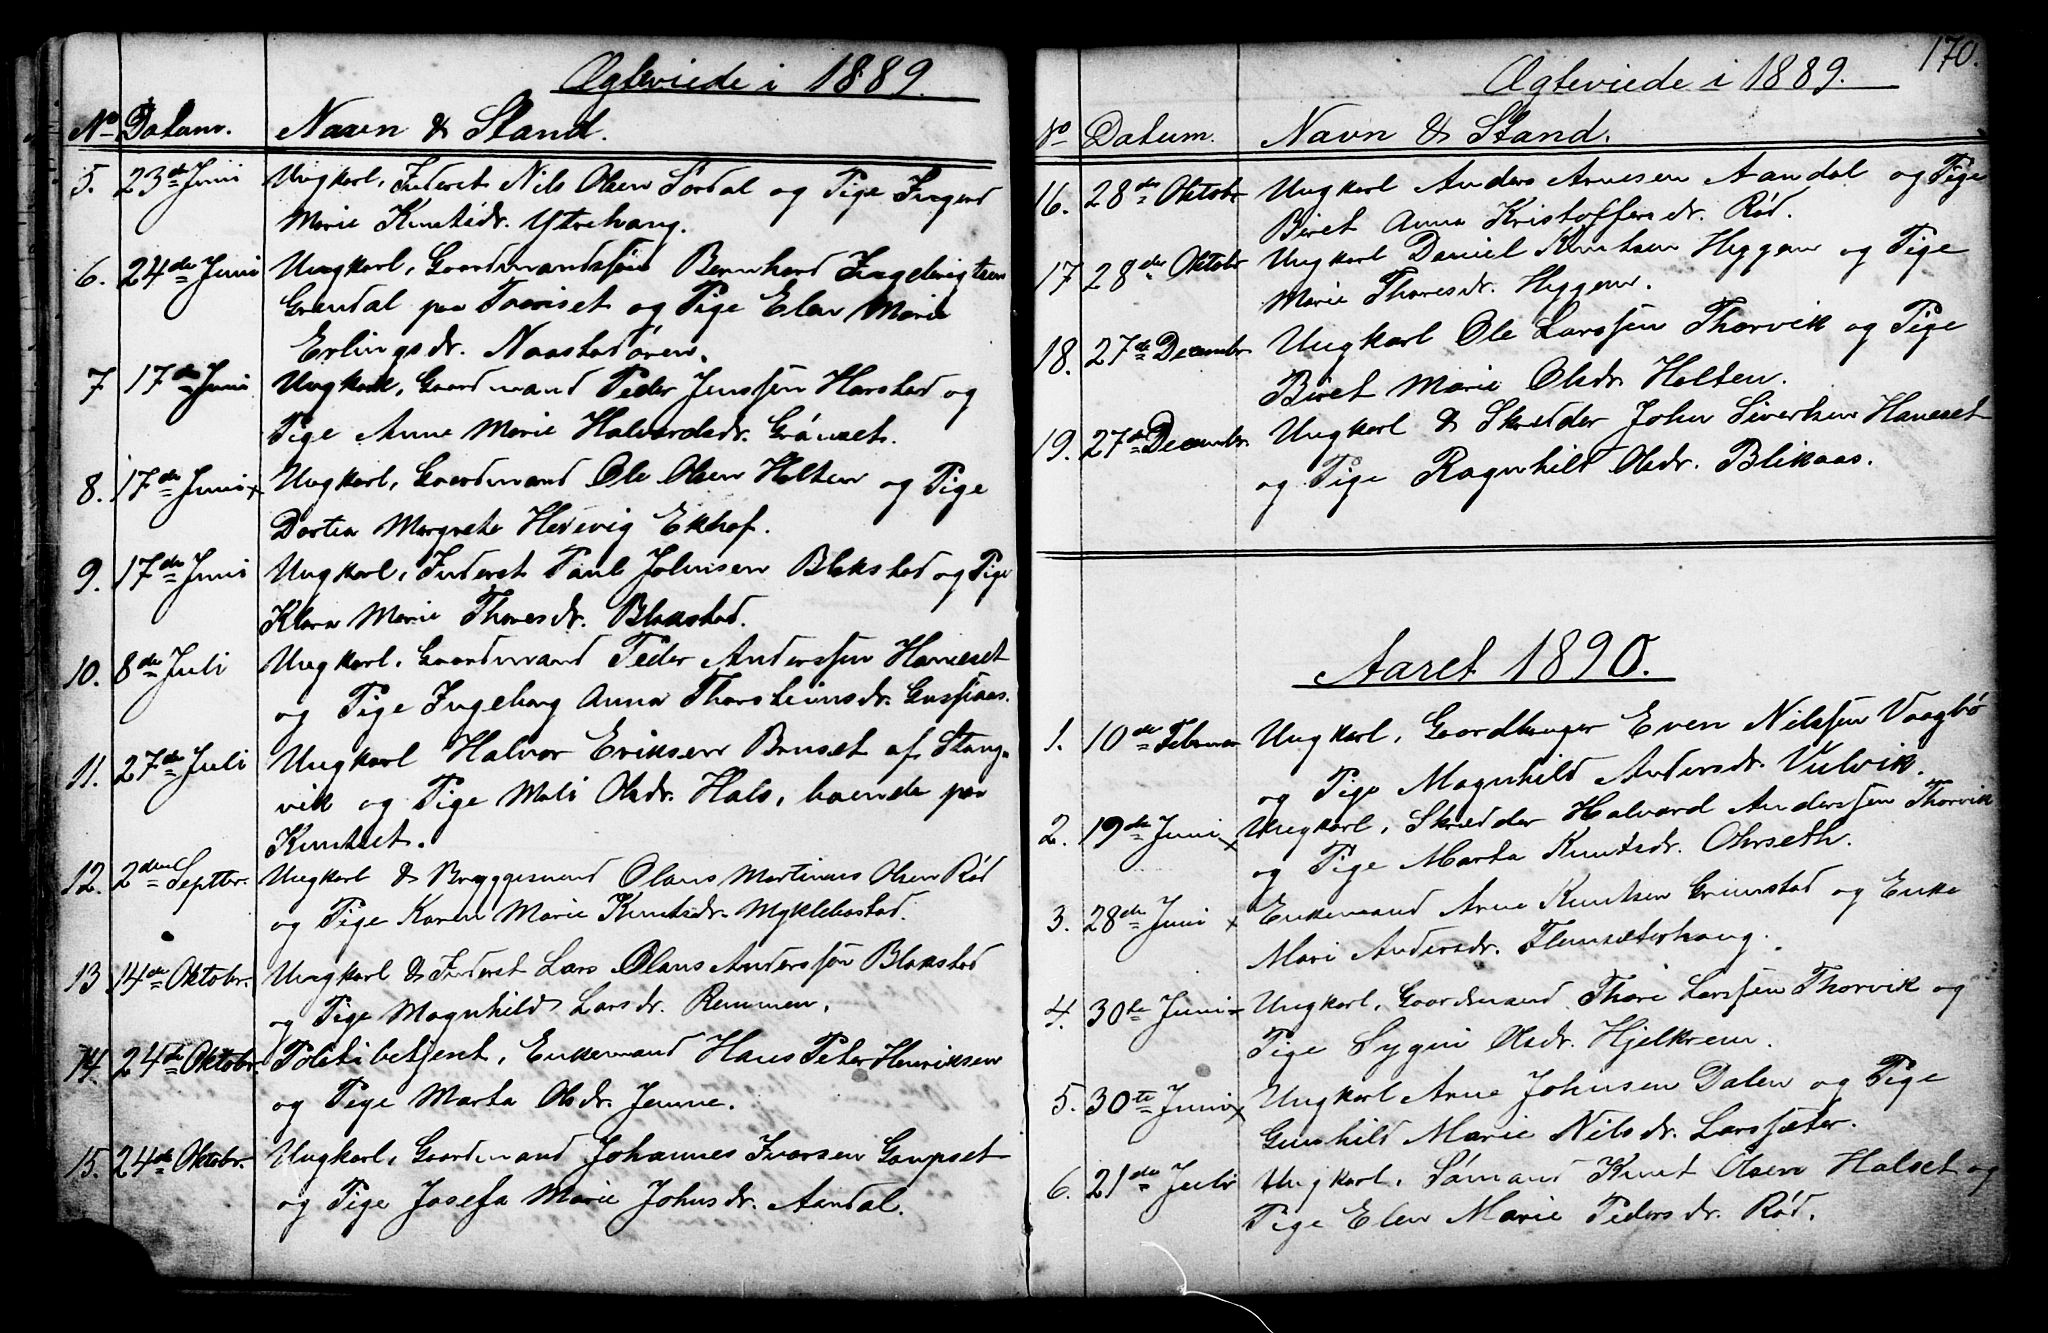 Ægteviede i 1889.
No Datum. Navn & Stand.
5. 23de Juni Ungkarl, Inderst Nils Olsen Sørdal og Pige Ingerd
Marie Knutsdr. Ytrehaug.
6. 24de Juni Ungkarl, Gaardmandssøn Bernhard Ingebrigtsen
Grendal paa og Pige Elen Marie
Erlingsdr. Naastadøren.
7 17de Juni Ungkarl, Gaardmand Peder Jenssen Harstad og
Pige Anne Marie Halvardsdr. Grønset.
8. 17de Juni x Ungkarl, Gaardmand Ole Olsen Holten og Pige
Dortea Margrete Hedevig Ekhof.
9. 17de Juni Ungkarl, Inderst Paul Johnsen Blakstad og Pige
Klara Marie Thoresdr. Blakstad.
10. 8de Juli Ungkarl, Gaardmand Peder Anderssen Haneset
og Pige Ingeborg Anna Thorsteinsdr. Gussiaas.
11. 27de Juli Ungkarl Halvor Eriksen Bruset af Stang-
vik og Pige Mali Olsdr. Hals, boende paa
Knutset.
12. 2den Septbr. Ungkarl & Bryggesmand Olaus Martinus Olsen Rød
og Pige Karen Marie Knutsdr. Myklebostad.
13 14de Oktobr. Ungkarl & Inderst Lars Olaus Anderssøn Blakstad
og Pige Magnhild Larsdr. Remmen.
14. 24de Oktobr. Politibetjent, Enkemand Hans Peter Henriksen
og Pige Marta Olsdr. Jenne.
15. 24de Oktobr. Ungkarl, Gaardmand Johannes Ivarsen Gaupset
og Pige Josefa Marie Johnsdr. Aandal.
170.
Ægteviede i 1889.
No Datum. Navn & Stand.
16. 28de Oktobr Ungkarl Anders Arnesen Aandal og Pige
Beret Anna Kristoffersdr. Rød.
17 28de Oktobr Ungkarl Daniel Knutsen Heggem og Pige
Marie Thoresdr. Heggem.
18. 27de Decembr Ungkarl Ole Larssen Thorvik og Pige
Beret Marie Olsdr. Holten.
19. 27de Decembr. Ungkarl & Skredder John Sivertsen Haneset
og Pige Ragnhild Olsdr. Blikaas.
Aaret 1890.
1. 10de Februar Ungkarl, Gaardbruger Even Nilssen Vaagbø
og Pige Magnhild Andersdr. Vulvik.
2. 19de Juni x Ungkarl, Skredder Halvard Anderssen Thorvik
og Pige Marta Knutsdr. Ohrseth.
3. 28de Juni x Enkemand Arne Knutsen Grimstad og Enke
Mari Andersdr. Flemsæterhaug.
4. 30te Juni x Ungkarl, Gaardmand Thore Larssen Thorvik og
Pige Sygni Olsdr. Hjelkrem.
5. 30te Juni x Ungkarl Arne Johnsen Dalen og Pige
Gunhild Marie Nilsdr. Larssæter.
6. 21de Juli Ungkarl, Sømand Knut Olsen Halset og
Pige Elen Marie Pedersdr. Rød.